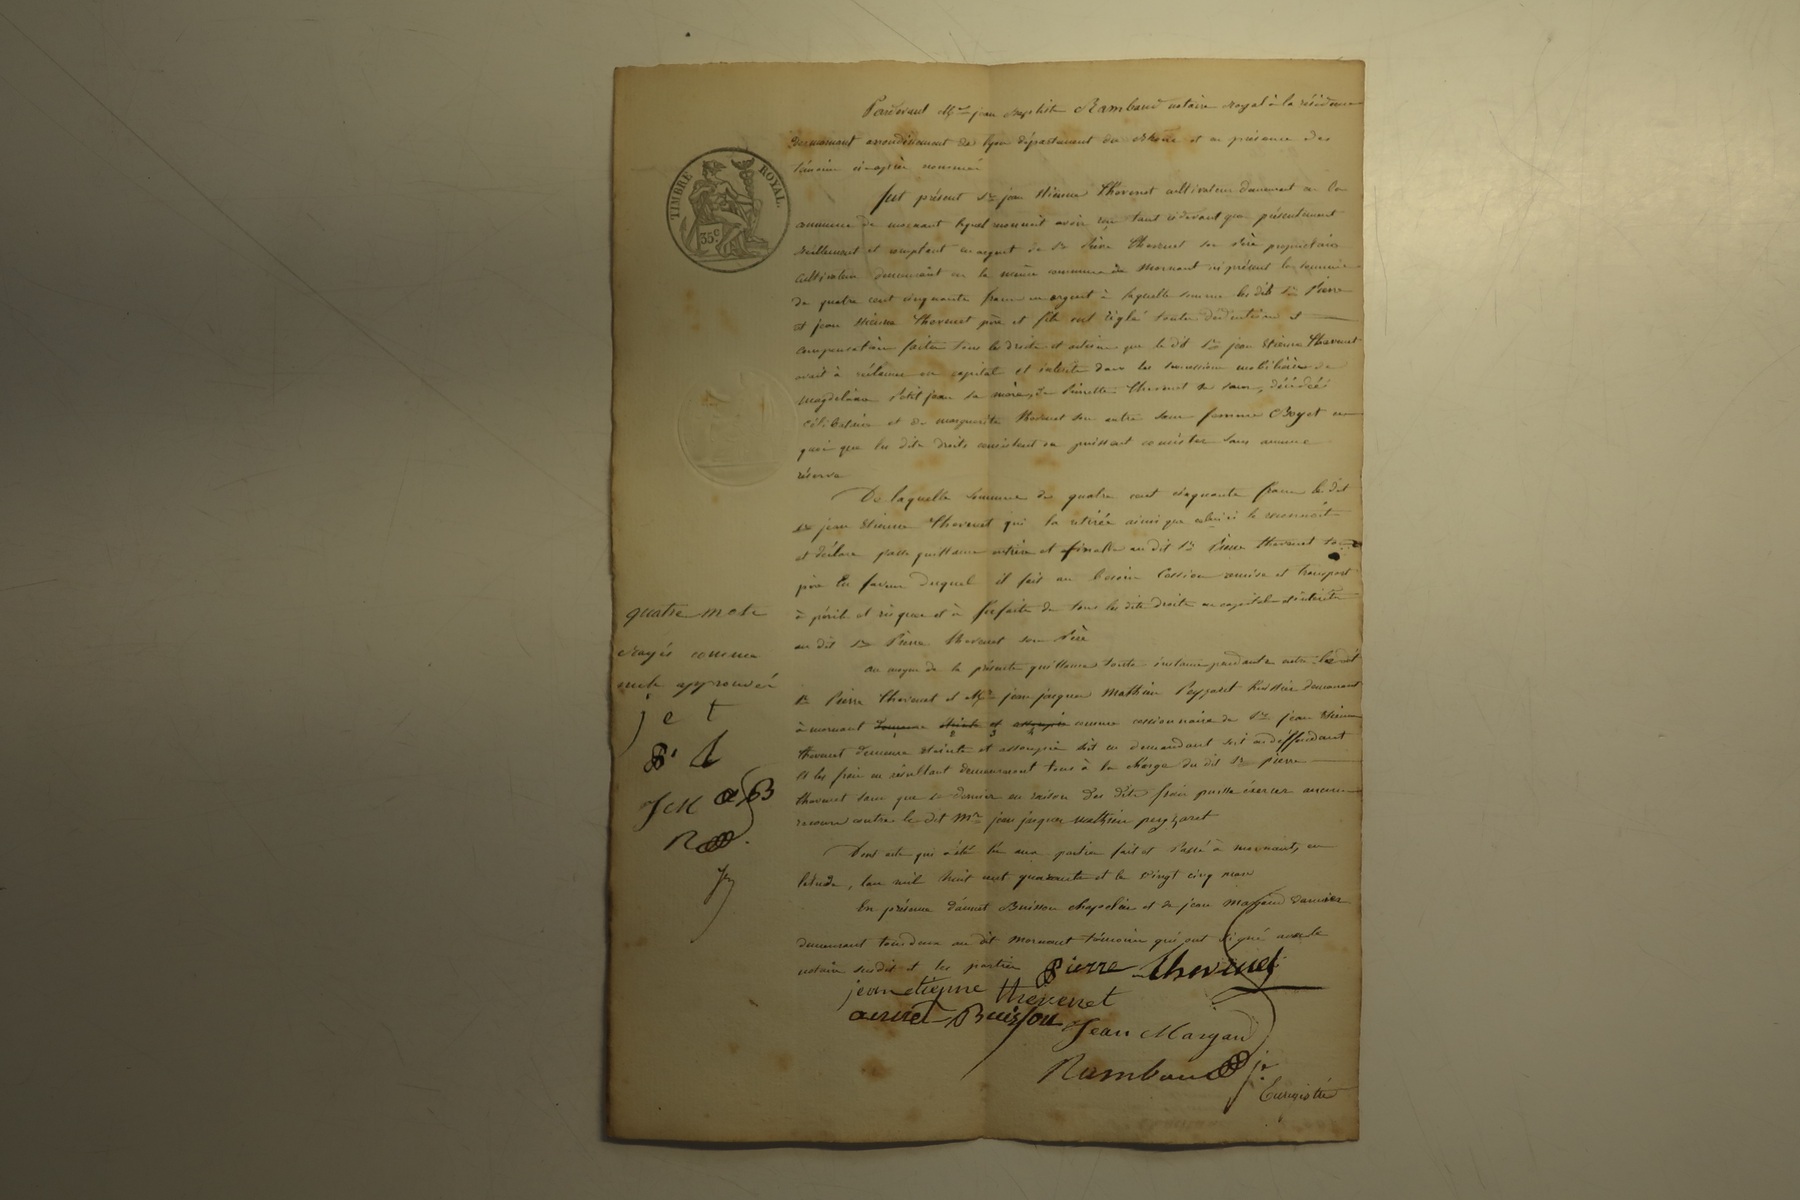 TIMBRE ROYAL.
35 c.
Pardevant Me jean Baptiste Rambaud notaire royal à la résidence
de mornant arrondissement de lyon département du Rhône et en présence des
témoins ci après nommés
fut présent Sr jean Etienne Thevenet cultivateur demeurant en la
commune de mornant lequel reconnait avoir reçu tant cidevant que présentement
réellement et comptant en argent de Sr Pierre Thevenet son père propriétaire
cultivateur demeurant en la même commune de Mornant ici présent la somme
de quatre cent cinquante francs en argent à laquelle somme les dits Srs Pierre
et jean Etienne Thevenet père et fils ont réglé toute déduction et
compensation faites tous les droits et actions que le dit Sr jean Etienne Thevenet
avait à réclamer en capital et intérêts dans les successions mobilières de
magdelaine Petit jean sa mère, de Pierrette Thevenet sa sœur, décédée
célibataire et de marguerite thevenet son autre sœur femme Boyet en
quoi que les dits droits consistent ou puissent consister sans aucune
réserve
De laquelle somme de quatre cent cinquante francs le dit
Sr jean Etienne Thevenet qui l'a retirée ainsi que celui ci le reconnait
et déclare passe quittance entière et finale au dit Sr Pierre thevenet son
père En faveur duquel il fait au besoin Cession remise et transport
à péril et risque et à forfaits de tous les dits droits en capital et intérêts
au dit Sr Pierre thevenet son père
au moyen de la présente quittance toute instance pendante entre le dit
Sr Pierre thevenet et Me jean jacques Mathieu Peyzaret huissier demeurant
à mornant demeure éteinte et assoupie comme cessionnaire de Sr jean Etienne
1 2 3 4
thevenet demeure éteinte et assoupie soit en demandant soit en deffendant
et les frais en résultant demeureront tous à la charge du dit Sr pierre
thevenet sans que ce dernier en raison des dits frais puisse exercer aucun
recours contre le dit Mr jean jacques mathieu peyzaret
Dont acte qui a été lu aux parties fait et Passé à mornant, en
l'étude, l'an mil huit cent quarante et le vingt cinq mars
En présence d'aimé Buisson chapelier et de jean
demeurant tous deux au dit Mornant témoins qui ont signé avec le
notaire susdit et les parties
Pierre thevenet
jean etienne thevenet
Buisson
Jean
Rambaud
Enregistré
quatre mots
rayés comme
nuls approuvés
j e t
P t
J M a B
R